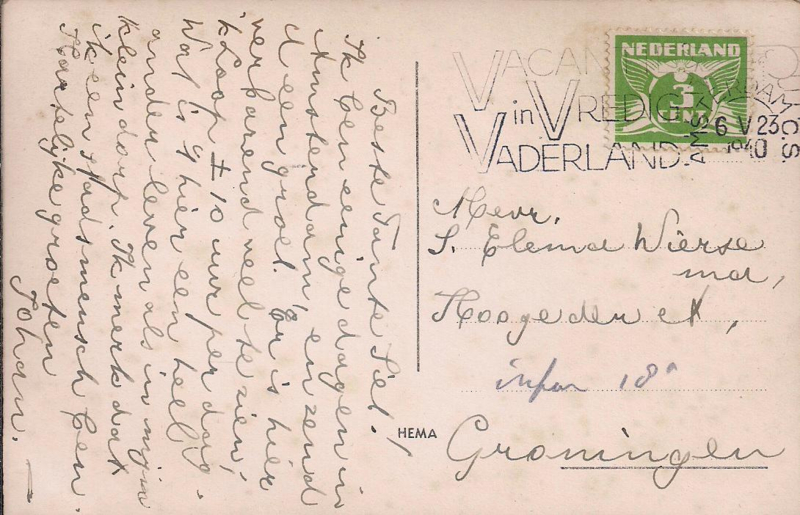 Beste Tante Siet!
Ik ben eenige dagen in
Amsterdam, en zend
U een groet. Er is hier
verbazend veel te zien,
ik loop ± 10 uur per dag.
Wat is 't hier een heel
ander leven als in mijn
klein dorp. Ik merk dat
ik een stadsmensch ben.
Hartelijke groeten
Johan.
VACAN
in VREDIG
VADERLAND.
NEDERLAND
3
CENT
AMSTERDAM
26 V 23
1940
Mevr.
S. Elema Wierse
ma,
Hoogeder A,
18a
HEMA
Groningen